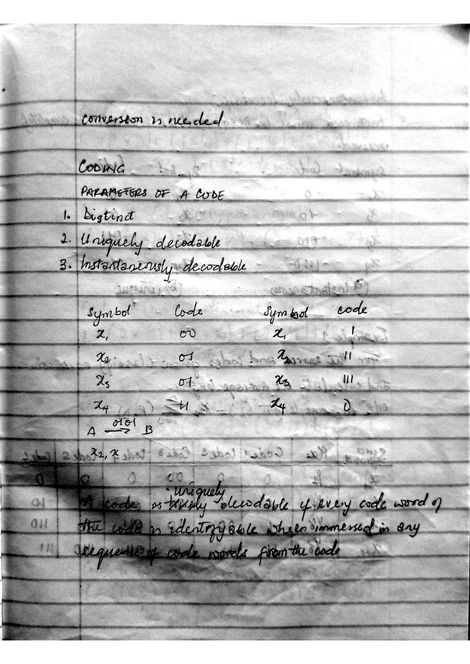 Conversion is needed
CODING
PARAMETERS OF A CODE
1. Distinct
2. Uniquely decodable
3. Instantaneously decodable
Symbol Code Symbol code
x₁ 00 x₁ 1
x₂ 01 x₂ 11
x₃ 01 x₃ 111
x₄ 11 x₄ 0
0101
A ⇌ B
x₂, x
uniquely
A code is decodable if every code word of
the code is identifyable when immersed in any
sequence of code words from the code